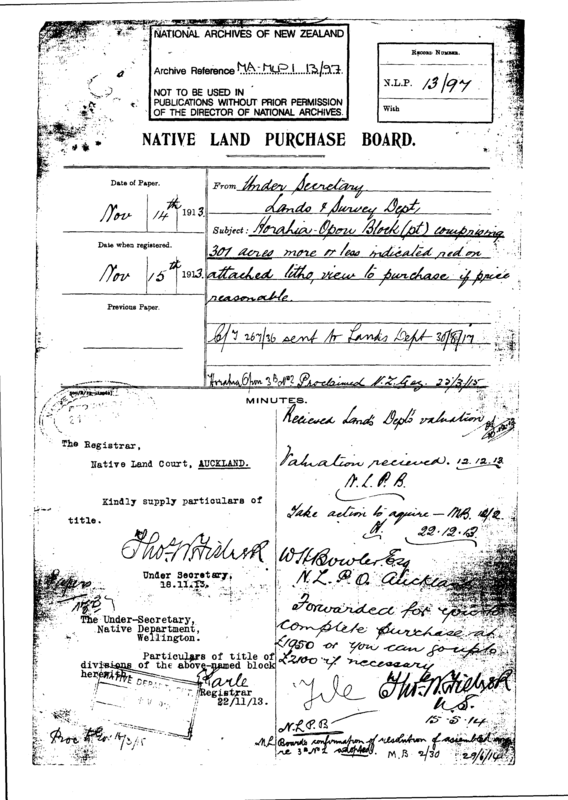 NATIONAL ARCHIVES OF NEW ZEALAND
Archive Reference MA-MLP 1 13/97
NOT TO BE USED IN
PUBLICATIONS WITHOUT PRIOR PERMISSION
OF THE DIRECTOR OF NATIONAL ARCHIVES.
RECORD NUMBER.
N.L.P. 13/97
With
NATIVE LAND PURCHASE BOARD.
Date of Paper.
Nov 14th 1913.
Date when registered.
Nov 15th 1913.
Previous Paper.
From Under Secretary
Lands & Survey Dept,
Subject: Horahia-Opou Block (pt) comprising
301 acres more or less indicated red on
attached litho, view to purchase if price
reasonable.
C/T 267/36 sent to Lands Dept 30/8/17
Horahia Opou 3B No2 Proclaimed N.Z. Gaz. 25/3/15
MINUTES.
The Registrar,
Native Land Court, AUCKLAND.
Kindly supply particulars of
title.
Tho. W. Fisher
Under Secretary,
18.11.13.
The Under-Secretary,
Native Department,
Wellington.
Particulars of title of
divisions of the above-named block
herewith.
Registrar
22/11/13.
NATIVE DEPT
Recieved Lands Dept's valuation
Valuation recieved. 12.12.13
N.L.P.B.
Take action to aquire — M.B.
22.12.13
W H Bowler, Esq
N.L.P.O. Auckland
Forwarded for you to
complete purchase at
£1950 or you can go up to
£2100 if necessary
File
Tho. W. Fisher
U.S.
15-5-14
N.L.P.B
Board's confirmation of resolution of assembled
re 3B No 2 adopted. M.B. 2/30 29/6/14